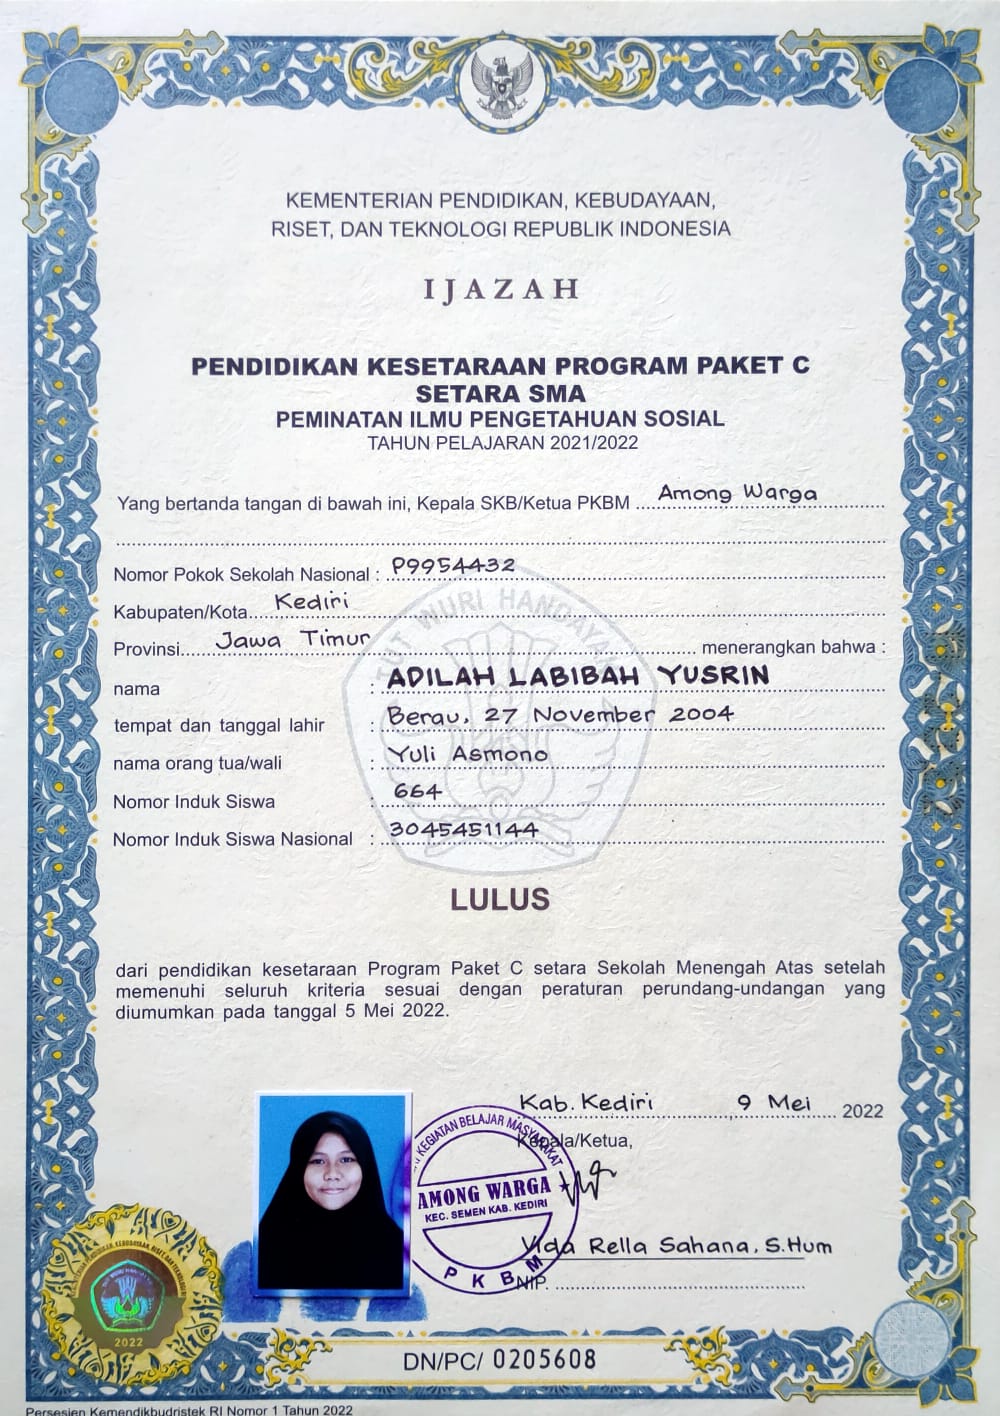 KEMENTERIAN PENDIDIKAN, KEBUDAYAAN,
RISET, DAN TEKNOLOGI REPUBLIK INDONESIA
IJAZAH
PENDIDIKAN KESETARAAN PROGRAM PAKET C
SETARA SMA
PEMINATAN ILMU PENGETAHUAN SOSIAL
TAHUN PELAJARAN 2021/2022
Yang bertanda tangan di bawah ini, Kepala SKB/Ketua PKBM Among Warga
Nomor Pokok Sekolah Nasional : P9954432
Kabupaten/Kota Kediri
Provinsi Jawa Timur menerangkan bahwa :
nama : ADILAH LABIBAH YUSRIN
tempat dan tanggal lahir : Berau, 27 November 2004
nama orang tua/wali : Yuli Asmono
Nomor Induk Siswa : 664
Nomor Induk Siswa Nasional : 3045451144
TUT WURI HANDAYANI
LULUS
dari pendidikan kesetaraan Program Paket C setara Sekolah Menengah Atas setelah
memenuhi seluruh kriteria sesuai dengan peraturan perundang-undangan yang
diumumkan pada tanggal 5 Mei 2022.
Kab. Kediri, 9 Mei 2022
Kepala/Ketua,
KEGIATAN BELAJAR MASYARAKAT
AMONG WARGA
KEC. SEMEN KAB. KEDIRI
PKBM
Vida Rella Sahana, S.Hum
NIP.
2022
DN/PC/ 0205608
Persesjen Kemendikbudristek RI Nomor 1 Tahun 2022